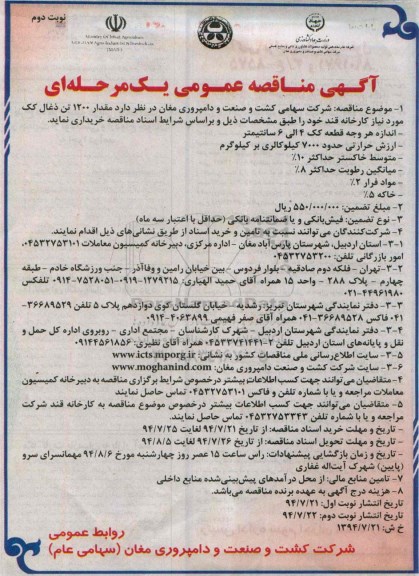 نوبت دوم
وزارت جهاد کشاورزی
آگهی مناقصه عمومی یک‌مرحله‌ای
۱- موضوع مناقصه: شرکت سهامی کشت و صنعت و دامپروری مغان در نظر دارد مقدار ۱۲۰۰ تن ذغال کک
مورد نیاز کارخانه قند خود را طبق مشخصات ذیل و براساس شرایط اسناد مناقصه خریداری نماید.
- اندازه هر وجه قطعه کک ۴ الی ۶ سانتیمتر
- ارزش حرارتی حدود ۷۰۰۰ کیلوکالری بر کیلوگرم
- متوسط خاکستر حداکثر ۱۰٪
- میانگین رطوبت حداکثر ۸٪
- مواد فرار ۲٪
- خاکه ۵٪
۲- مبلغ تضمین: ۵۵۰/۰۰۰/۰۰۰ ریال
۳- نوع تضمین: فیش‌بانکی و یا ضمانتنامه بانکی (حداقل با اعتبار سه ماه)
۴- شرکت‌کنندگان می‌توانند نسبت به تامین و خرید اسناد از طریق نشانی‌های ذیل اقدام نمایند.
۳-۱- استان اردبیل، شهرستان پارس‌آباد مغان - اداره مرکزی، دبیرخانه کمیسیون معاملات ۰۴۵۳۲۷۵۳۱۰۱،
امور بازرگانی تلفن: ۰۴۵۳۲۷۵۳۲۰۰
۳-۲- تهران - فلکه دوم صادقیه - بلوار فردوس - بین خیابان رامین و وفاآذر - جنب ورزشگاه خادم - طبقه
چهارم - پلاک ۲۸۸ - واحد ۱۵ همراه آقای حمید الهیاری: ۱۲۷۹۲۱۵-۰۹۱۹ -۷۵۲۸۰۵۱-۰۹۱۴ تلفکس
۰۲۱-۴۴۹۶۱۹۸۰
۳-۳- دفتر نمایندگی شهرستان تبریز، رشدیه - خیابان گلستان کوی دوازدهم پلاک ۵ تلفن ۳۶۶۸۹۵۲۹-
۰۴۱ فاکس ۳۶۶۸۹۵۲۸-۰۴۱ همراه آقای صفر فهیمی ۲۰۶۳۸۹۹-۰۹۱۴
۳-۴- دفتر نمایندگی شهرستان اردبیل - شهرک کارشناسان - مجتمع اداری - روبروی اداره کل حمل و
نقل و پایانه‌های استان اردبیل تلفن ۲-۰۴۵۳۳۷۴۱۴۴۱ همراه آقای نظیری: ۰۹۱۴۴۵۶۱۸۵۶
۳-۵- سایت اطلاع‌رسانی ملی مناقصات کشور به نشانی: www.icts.mporg.ir
۳-۶- سایت شرکت کشت و صنعت و دامپروری مغان: www.moghanind.com
۴- متقاضیان می‌توانند جهت کسب اطلاعات بیشتر درخصوص شرایط برگزاری مناقصه به دبیرخانه کمیسیون
معاملات مراجعه و یا با شماره تلفن و فاکس ۰۴۵۳۲۷۵۳۱۰۱ تماس حاصل نمایند
۵- متقاضیان می‌توانند جهت کسب اطلاعات بیشتر درخصوص موضوع مناقصه به کارخانه قند شرکت
مراجعه و یا با شماره تلفن ۰۴۵۳۲۷۵۳۳۴۳ تماس حاصل نمایند.
- تاریخ و مهلت خرید اسناد مناقصه: از تاریخ ۹۴/۷/۲۱ لغایت ۹۴/۷/۲۵
- تاریخ و مهلت تحویل اسناد مناقصه: از تاریخ ۹۴/۷/۲۶ لغایت ۹۴/۸/۵
- تاریخ و زمان بازگشایی پیشنهادات: راس ساعت ۱۵ عصر روز چهارشنبه مورخ ۹۴/۸/۶ مهمانسرای سرو
(پایین) شهرک آیت‌اله غفاری
۷- تامین منابع مالی: از محل درآمدهای پیش‌بینی‌شده منابع داخلی
۸- هزینه درج آگهی به عهده برنده مناقصه می‌باشد.
تاریخ انتشار نوبت اول: ۹۴/۷/۲۱
تاریخ انتشار نوبت دوم: ۹۴/۷/۲۲
خ ش: ۱۳۹۴/۷/۲۱
روابط عمومی
شرکت کشت و صنعت و دامپروری مغان (سهامی عام)